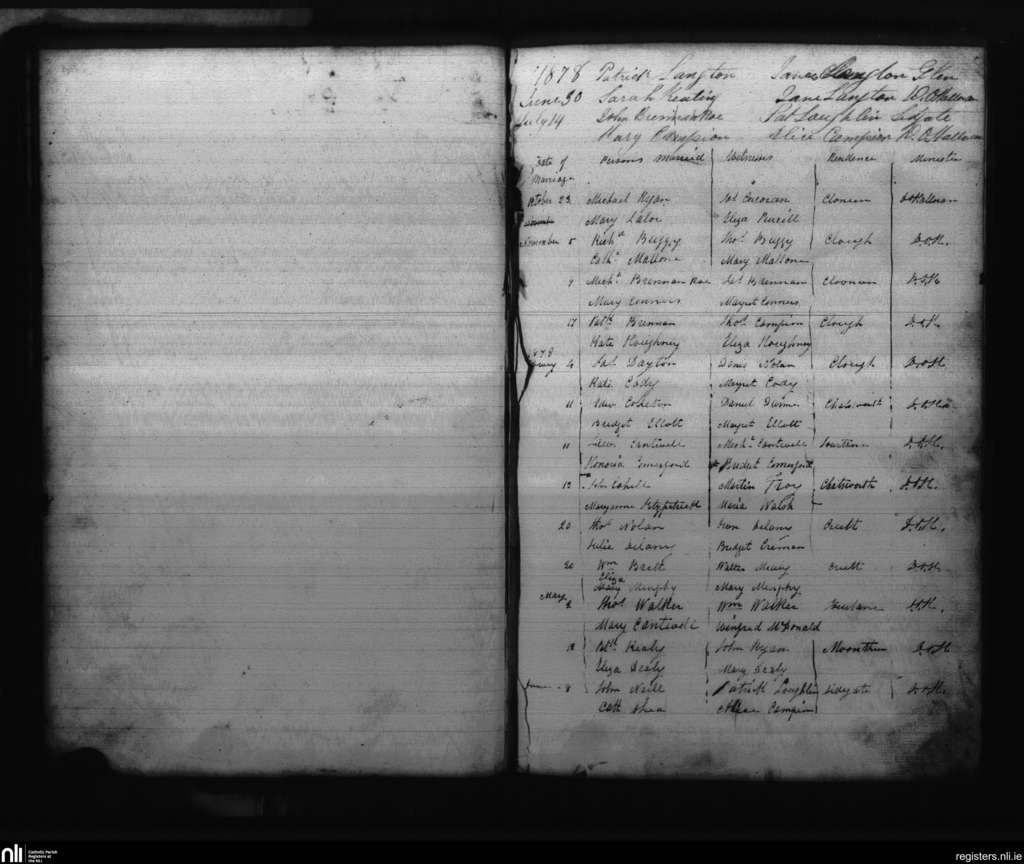 1878 Patrick Langton James Langton Glen
June 30 Sarah Keating Jane Langton D. O'Halloran
July 14 John Brennan Roe Pat Loughlin Lidgate
Mary Campion Alice Campion D. O'Halloran
Date of Marriage Persons married Witnesses Residence Minister
October 23 Michael Ryan Corcoran Cloneen O'Halloran
Mary Lalor Eliza Purcill
November 5 Richd Buggy Thos Buggy Clough D.O'H.
Cath. Mallone Mary Mallone
9 Michl Brennan Roe Jas Brennan Clooneen D.O'H.
Mary Conners Margret Conners
17 Patk Brennan Thos Campion Clough D.O'H.
Kate Houghney Eliza Houghney
1878 4 Jas Dayton Denis Nolan Clough D.O'H.
Kate Cody Margret Cody
11 Edwd Daniel Chatsworth D.O'H.
Bridget Ellott Margret Ellott
11 Cantwell Michl Cantwell D.O'H.
Honoria Comerford Bridget Comerford
12 John Cahill Martin Troy Chatsworth D.O'H.
Maryanne Fitzpatrick Maria Walsh
20 Thos Nolan Delany Cruitt D.O'H.
Julia Delany Bridget
20 Wm Brett Walter Cruitt D.O'H.
Eliza
Mary Murphy Mary Murphy
May 2 Thos Walker Wm Walker D.O'H.
Mary Cantwell Winefred McDonald
18 Patk Kealy John Ryan Moonteen D.O'H.
Eliza Mary
June 8 John Neill Patrick Loughlin Lidgate D.O'H.
Cath Shea Alice Campion
nli Catholic Parish
Registers at
the NLI
registers.nli.ie